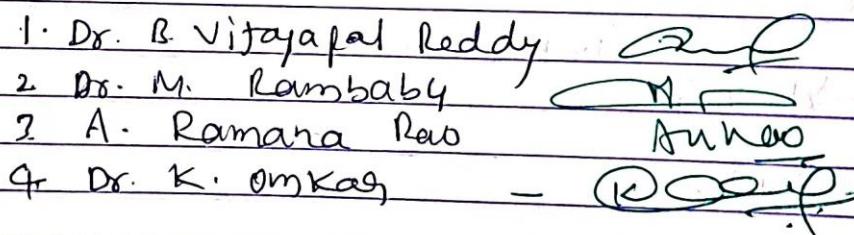 1. Dr. B. Vijayapal Reddy
2 Dr. M. Rambaby
3. A. Ramana Rao
4 Dr. K. Omkar -